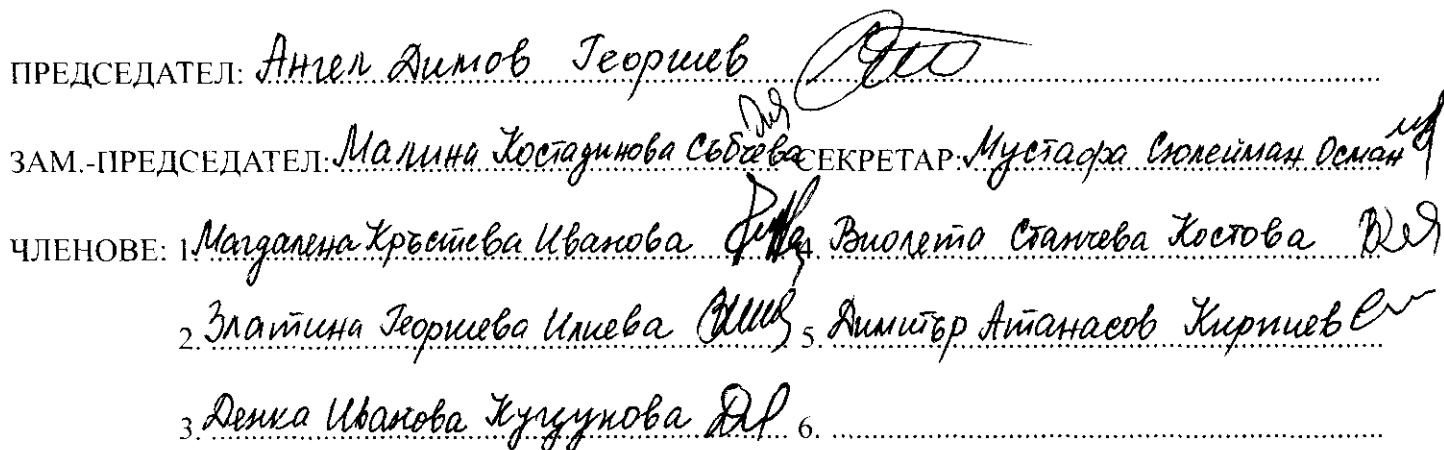 ПРЕДСЕДАТЕЛ: Ангел Димов Георгиев
ЗАМ.-ПРЕДСЕДАТЕЛ: Малина Костадинова Събчева СЕКРЕТАР: Мустафа Сюлейман Осман
ЧЛЕНОВЕ: 1. Магдалена Кръстева Иванова 4. Виолета Станчева Костова
2. Златина Георгиева Илиева 5. Димитър Атанасов
3. Денка Иванова 6.